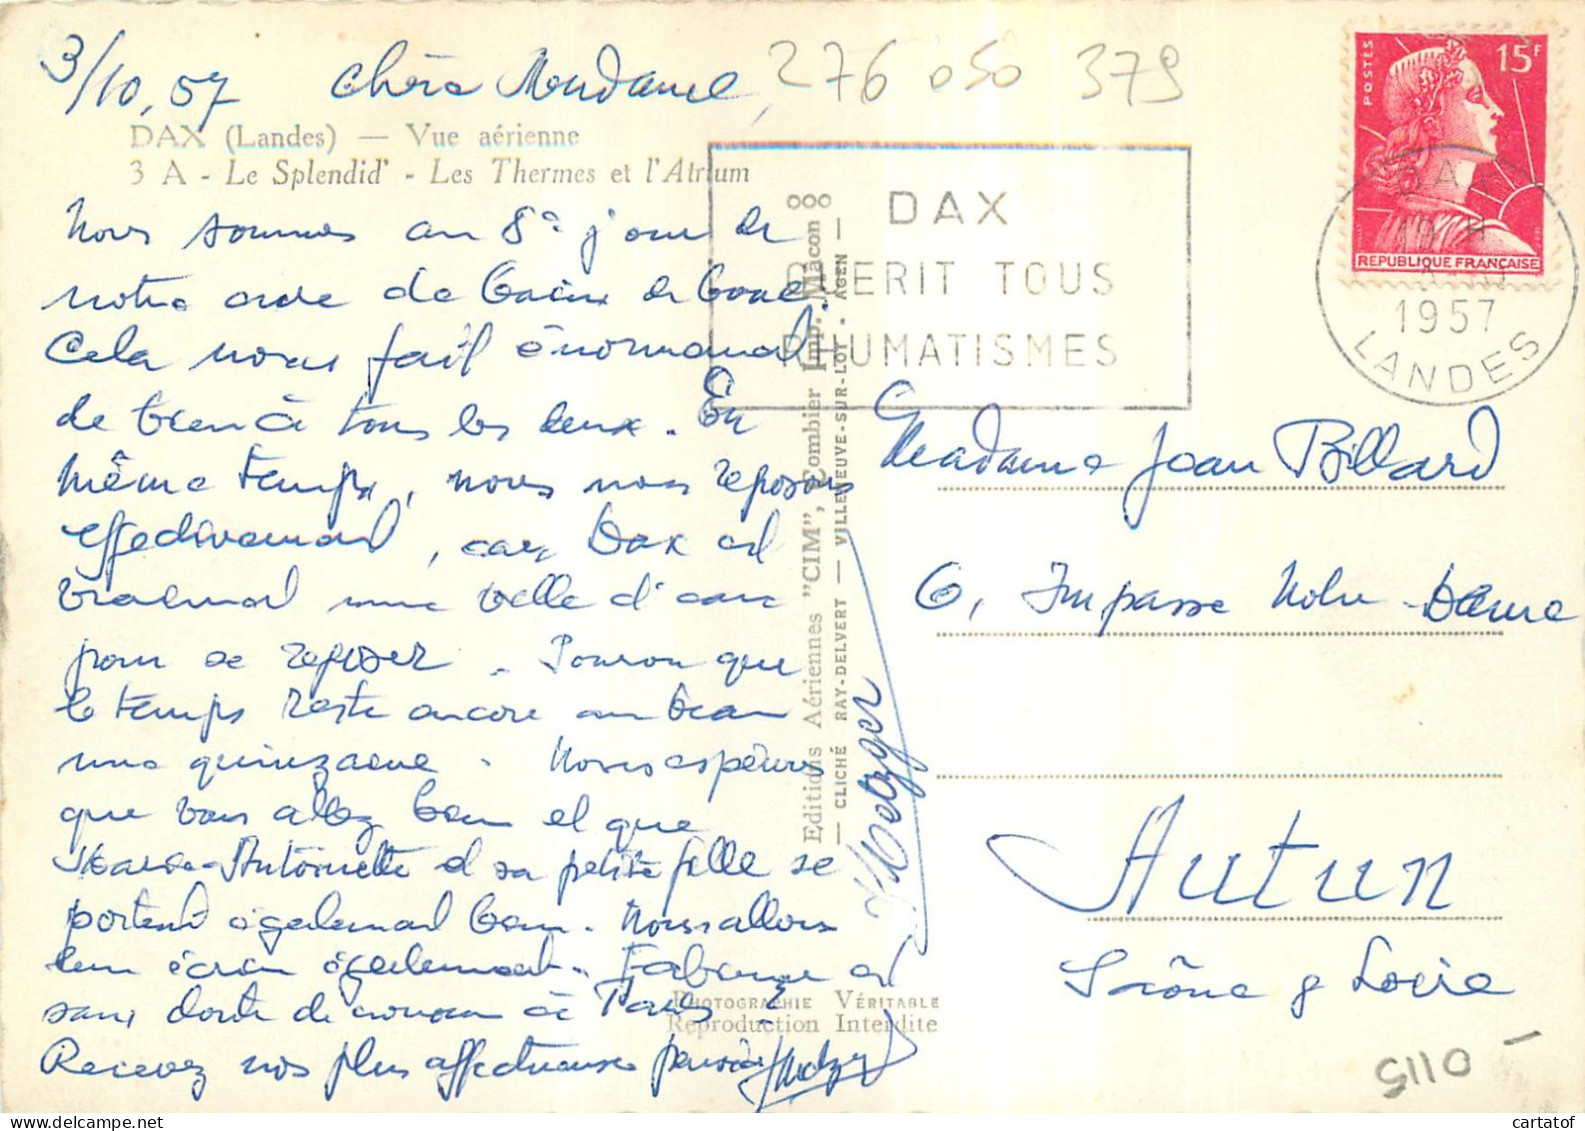 3/10.57 Chère Madame,
276 050 379
DAX (Landes) — Vue aérienne
3 A - Le Splendid' - Les Thermes et l'Atrium
Nous sommes au 8e jour de
notre cure de bains de boue.
Cela nous fait énormément
de bien à tous les deux. En
même temps, nous nous reposons
effectivement, car Dax est
vraiment une ville d'eau
pour se reposer. Pourvu que
le temps reste encore au beau
une quinzaine. Nous espérons
que vous allez bien et que
Marie-Antoinette et sa petite fille se
portent également bien. Nous allons
leur écrire également. Fabienne est
sans doute de nouveau à Paris ?
Recevez nos plus affectueuses pensées
Metzger
Metzger
Editions Aériennes "CIM", Combier Imp. Mâcon
— CLICHÉ RAY-DELVERT — VILLENEUVE-SUR-LOT . AGEN —
PHOTOGRAPHIE VÉRITABLE
Reproduction Interdite
DAX
GUERIT TOUS
RHUMATISMES
POSTES
15F
REPUBLIQUE FRANÇAISE
DAX
1957
LANDES
Madame Jean Billard
6, Impasse Notre-Dame
Autun
Saône & Loire
5110
cartatof